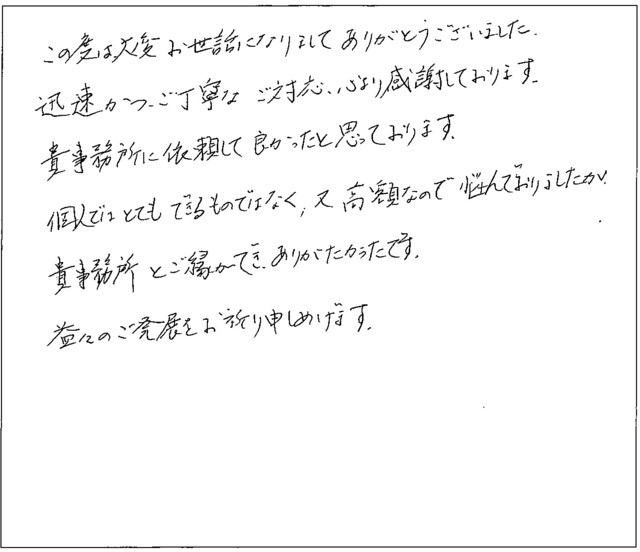 この度は大変お世話になりましてありがとうございました.
迅速かつご丁寧なご対応、心より感謝しております.
貴事務所に依頼して良かったと思っております.
個人ではとてもできるものではなく、又高額なので悩んでおりましたが、
貴事務所とご縁ができ、ありがたかったです.
益々のご発展をお祈り申しあげます.